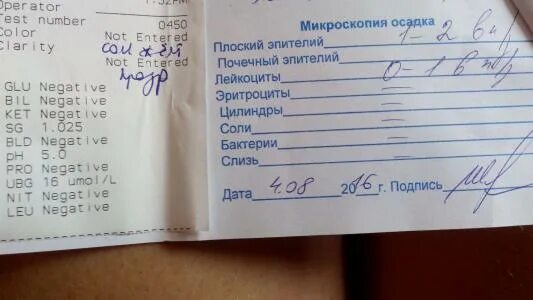 Operator 1:32PM
Test number 0450
Color Not Entered
сол жёл
Clarity Not Entered
прозр
GLU Negative
BIL Negative
KET Negative
SG 1.025
BLD Negative
pH 5.0
PRO Negative
UBG 16 umol/L
NIT Negative
LEU Negative
Микроскопия осадка
Плоский эпителий 1-2 в п/з
Почечный эпителий —
Лейкоциты 0-1 в п/з
Эритроциты —
Цилиндры —
Соли —
Бактерии —
Слизь —
Дата 4.08 2016 г. Подпись